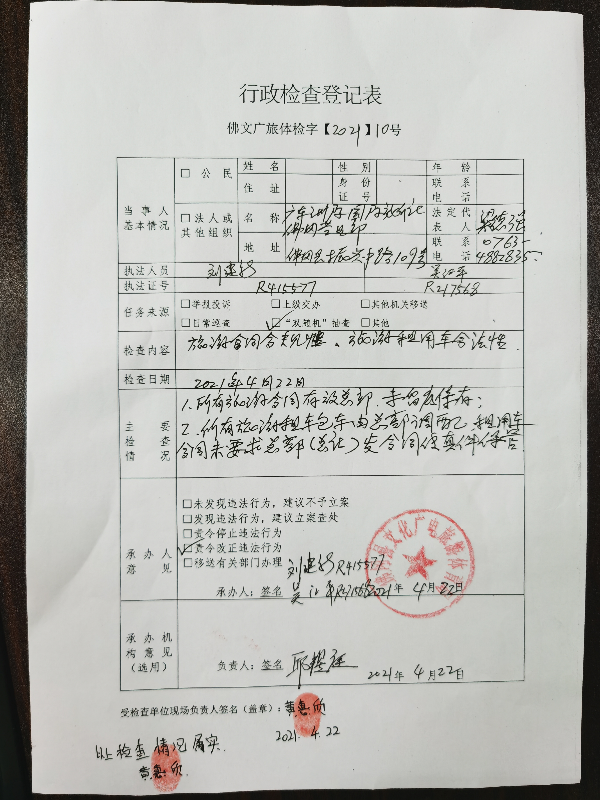 行政检查登记表
佛文广旅体检字【2021】10号
当事人基本情况
□ 公民 姓名 性别 年龄
住址 身份证号 联系电话
□法人或其他组织 名称 佛冈营业部 法定代表人
地址 佛冈县振兴中路109号 联系电话 0763-4882835
执法人员 刘建好 吴江平
执法证号 R415577 R217568
任务来源 □举报投诉 □上级交办 □其他机关移送
□日常巡查 ☑“双随机”抽查 □其他
检查内容 旅游合同合规性、旅游租用车合法性.
检查日期 2021年4月22日
主要检查情况
1.所有旅游合同存放总部,未留底保存;
2.所有旅游租车包车由总部调配,租用车
合同未要求总部(总社)发合同传真件保存
承办人意见
□未发现违法行为,建议不予立案
□发现违法行为,建议立案查处
□责令停止违法行为
☑责令改正违法行为
□移送有关部门办理 刘建好R415577
承办人:签名 吴江平 2021年4月22日
承办机构意见(选用)
负责人:签名 2021年4月22日
受检查单位现场负责人签名(盖章):黄惠欣
2021.4.22
以上检查情况属实.
黄惠欣